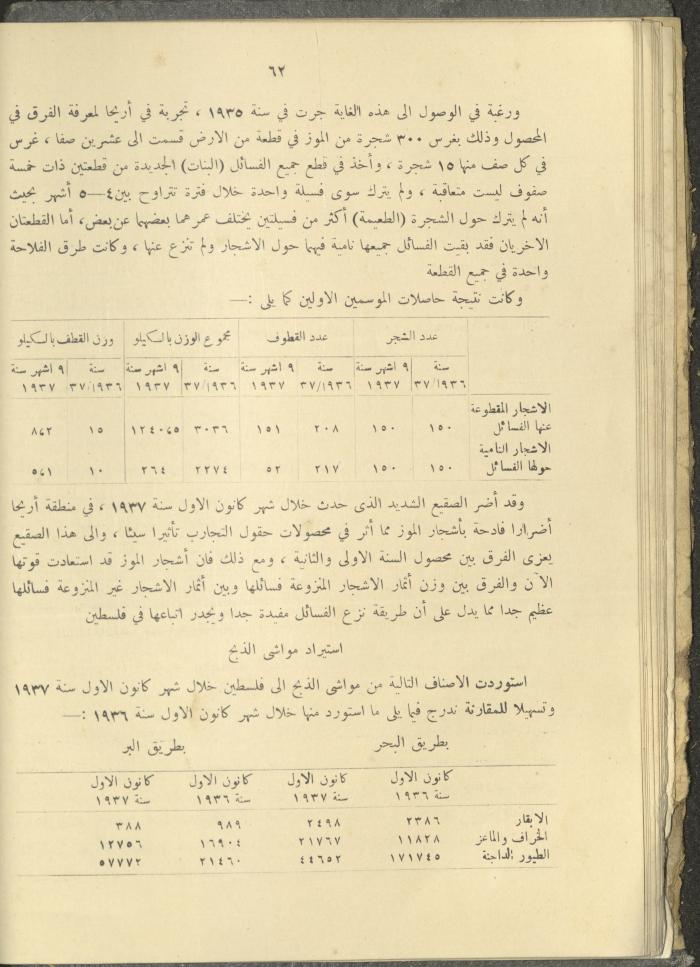 ٦٢
ورغبة في الوصول الى هذه الغاية جرت في سنة ١٩٣٥ ، تجربة في أريحا لمعرفة الفرق في
المحصول وذلك بغرس ٣٠٠ شجرة من الموز في قطعة من الارض قسمت الى عشرين صفا ، غرس
في كل صف منها ١٥ شجرة ، وأخذ في قطع جميع الفسائل (البنات) الجديدة من قطعتين ذات خمسة
صفوف ليست متعاقبة ، ولم يترك سوى فسيلة واحدة خلال فترة تتراوح بين ٤—٥ أشهر بحيث
أنه لم يترك حول الشجرة (الطعيمة) أكثر من فسيلتين يختلف عمرهما بعضهما عن بعض، أما القطعتان
الاخريان فقد بقيت الفسائل جميعها نامية فيهما حول الاشجار ولم تنزع عنها ، وكانت طرق الفلاحة
واحدة في جميع القطعة
وكانت نتيجة حاصلات الموسمين الاولين كما يلى :—
عدد الشجر عدد القطوف مجموع الوزن بالكيلو وزن القطف بالكيلو
سنة ٩ اشهر سنة سنة ٩ اشهر سنة سنة ٩ اشهر سنة سنة ٩ اشهر سنة
٣٧/١٩٣٦ ١٩٣٧ ٣٧/١٩٣٦ ١٩٣٧ ٣٧/١٩٣٦ ١٩٣٧ ٣٧/١٩٣٦ ١٩٣٧
الاشجار المقطوعة
عنها الفسائل ١٥٠ ١٥٠ ٢٠٨ ١٥١ ٣٠٣٦ ١٥
الاشجار النامية
حولها الفسائل ١٥٠ ١٥٠ ٢١٧ ٥٢ ٢٢٧٤ ٢٦٤ ١٠
وقد أضر الصقيع الشديد الذى حدث خلال شهر كانون الاول سنة ١٩٣٧ ، في منطقة أريحا
أضرارا فادحة بأشجار الموز مما أثر في محصولات حقول التجارب تأثيرا سيئا ، والى هذا الصقيع
يعزى الفرق بين محصول السنة الاولى والثانية ، ومع ذلك فان أشجار الموز قد استعادت قوتها
الآن والفرق بين وزن أثمار الاشجار المنزوعة فسائلها وبين أثمار الاشجار غير المنزوعة فسائلها
عظيم جدا مما يدل على أن طريقة نزع الفسائل مفيدة جدا ويجدر اتباعها في فلسطين
استيراد مواشى الذبح
استوردت الاصناف التالية من مواشى الذبح الى فلسطين خلال شهر كانون الاول سنة ١٩٣٧
وتسهيلا للمقارنة ندرج فيما يلى ما استورد منها خلال شهر كانون الاول سنة ١٩٣٦ :—
بطريق البحر بطريق البر
كانون الاول كانون الاول كانون الاول كانون الاول
سنة ١٩٣٦ سنة ١٩٣٧ سنة ١٩٣٦ سنة ١٩٣٧
الابقار ٢٣٨٦ ٢٤٩٨ ٩٨٩ ٣٨٨
الخراف والماعز ١١٨٢٨ ٢١٧٦٧ ١٦٩٠٤ ١٢٧٥٦
الطيور الداجنة ١٧١٧٤٥ ٤٤٦٥٢ ٢١٤٦٠ ٥٧٧٧٢